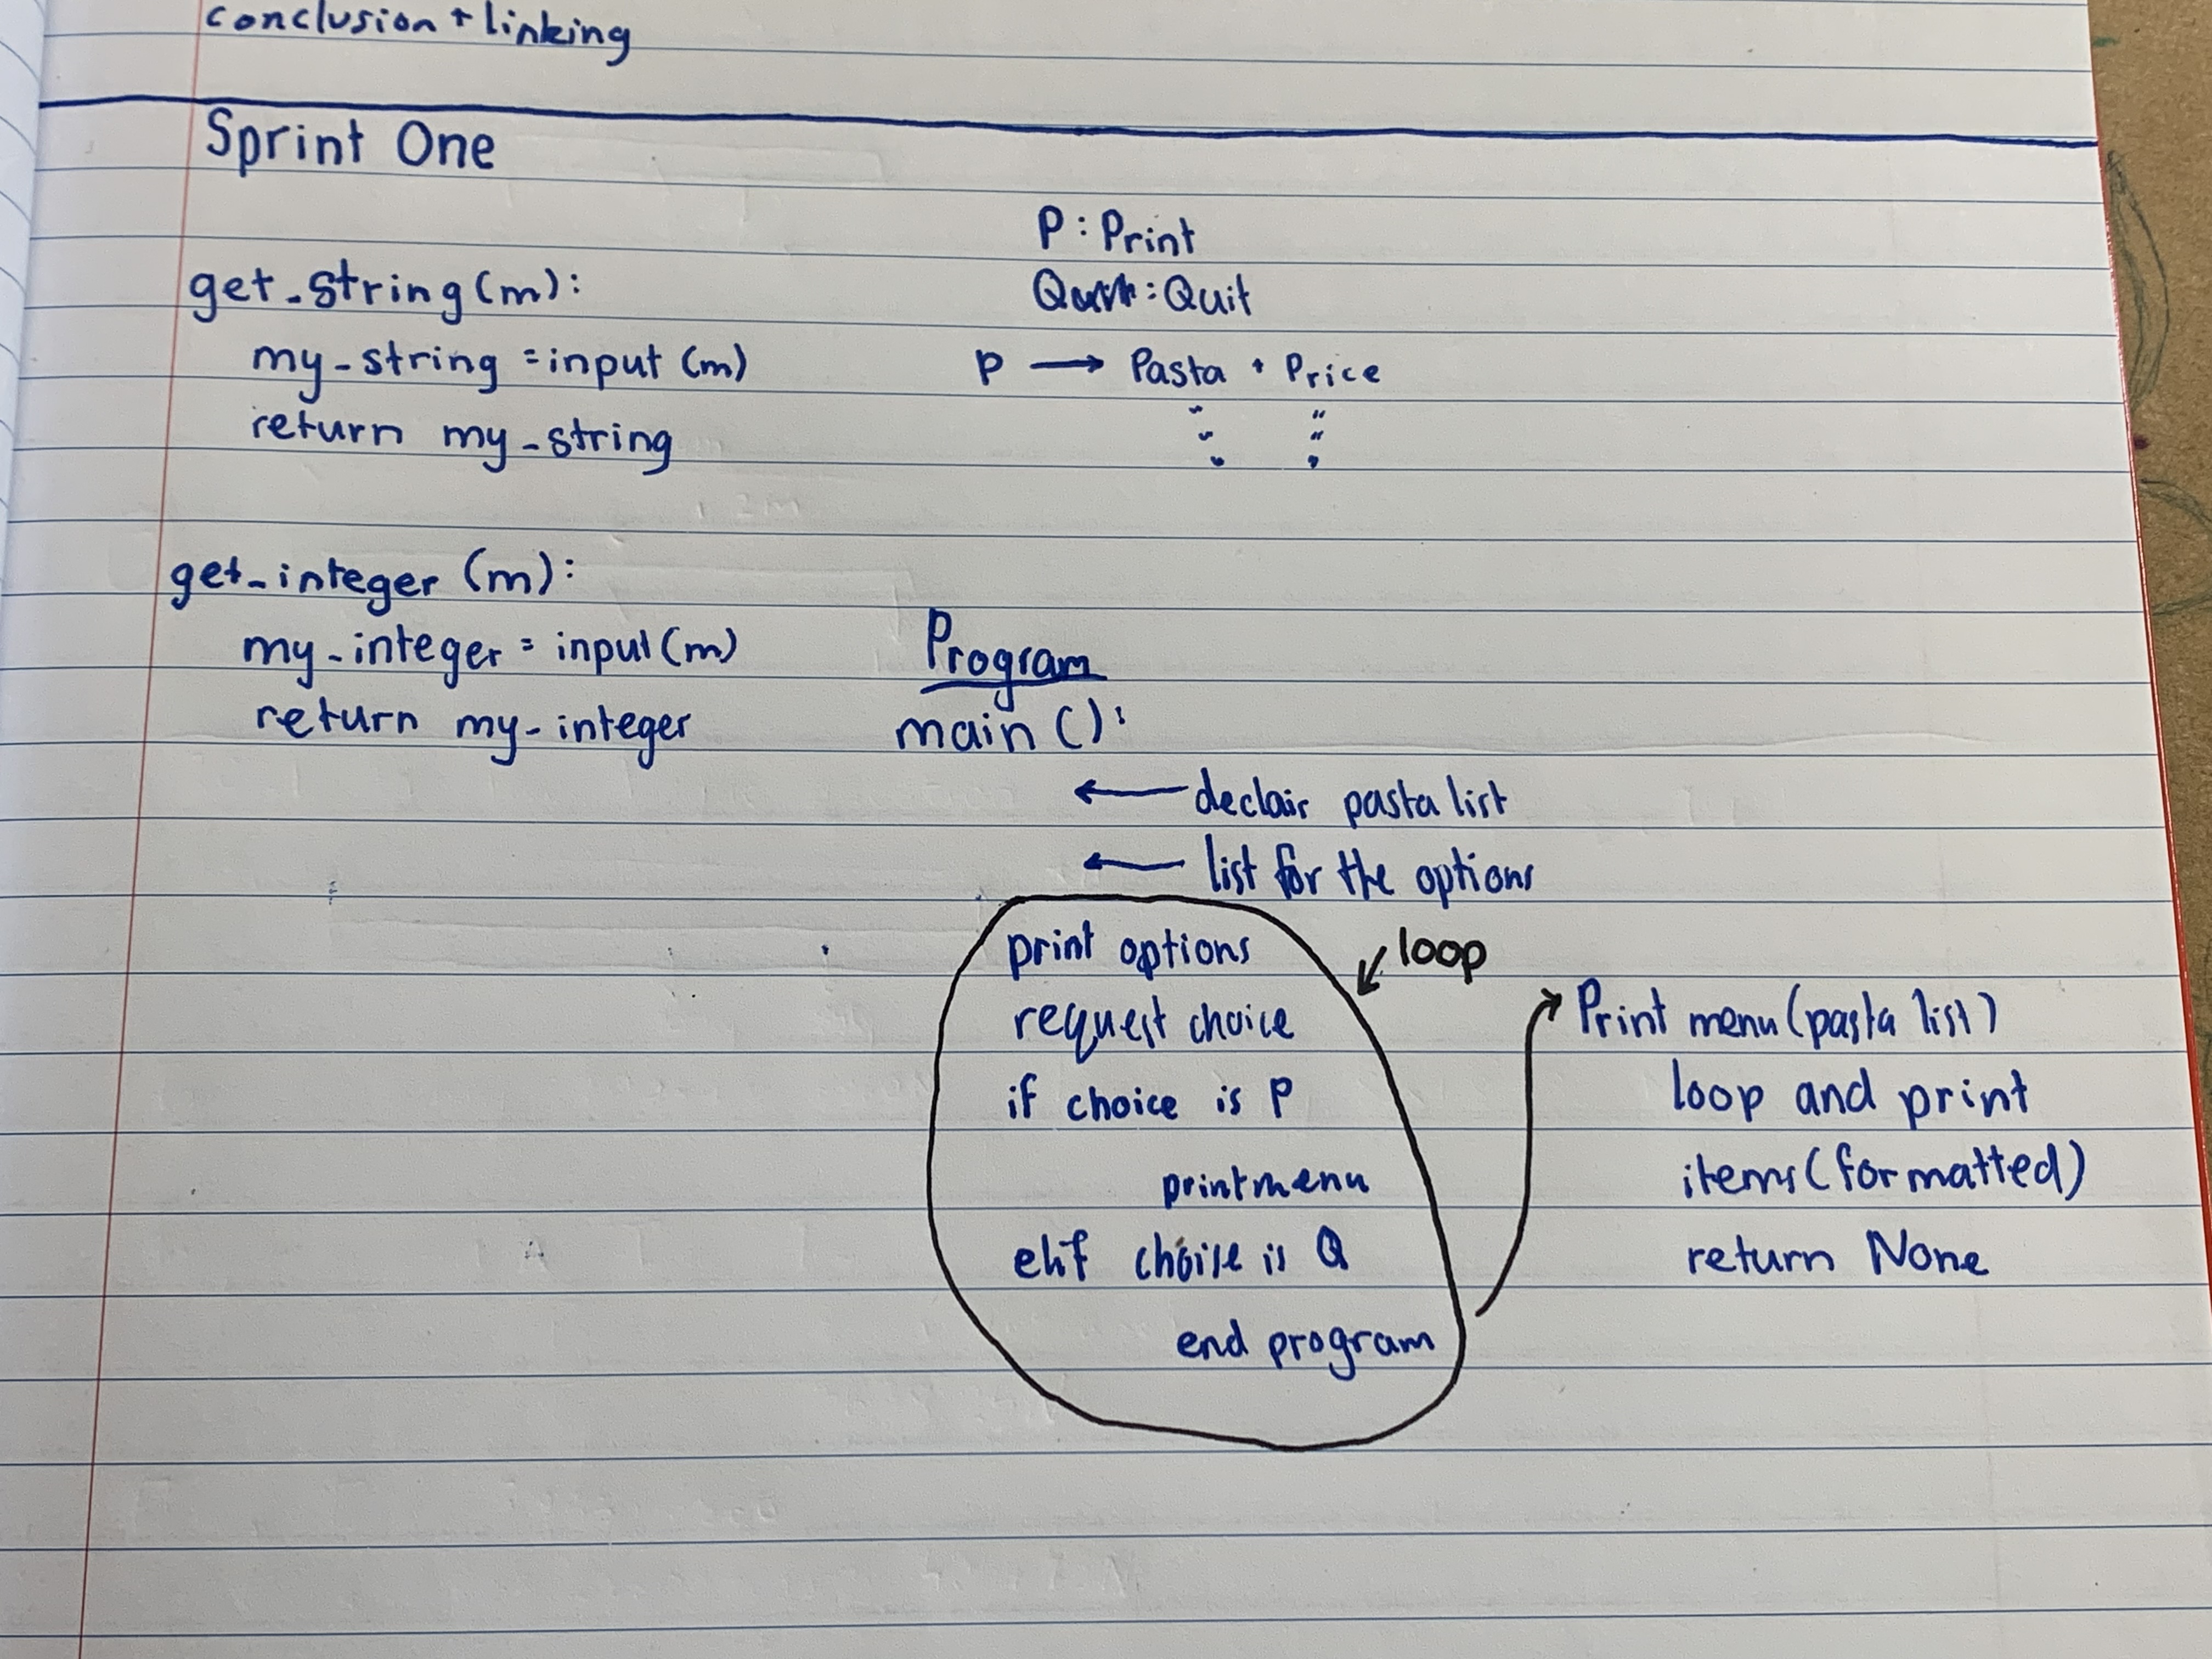 conclusion + linking
Sprint One
get_string(m):
my_string = input (m)
return my_string
P : Print
Q : Quit
P → Pasta + Price
" "
" "
" "
get_integer (m):
my_integer = input(m)
return my_integer
Program
main ():
← declair pasta list
← list for the options
print options
request choice
if choice is P
printmenu
elif choise is Q
end program
↙ loop
Print menu (pasta list)
loop and print
items (formatted)
return None